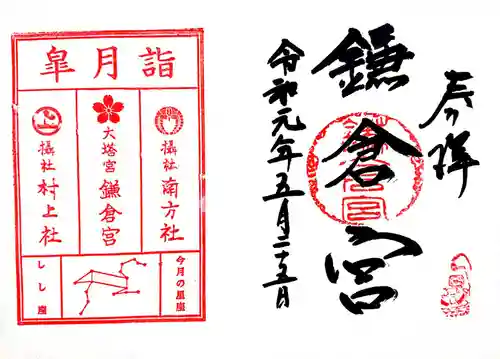 奉拝
鎌倉宮
令和元年五月二十五日
皐月詣
摂社 南方社
大塔宮 鎌倉宮
摂社 村上社
今月の星座
しし座